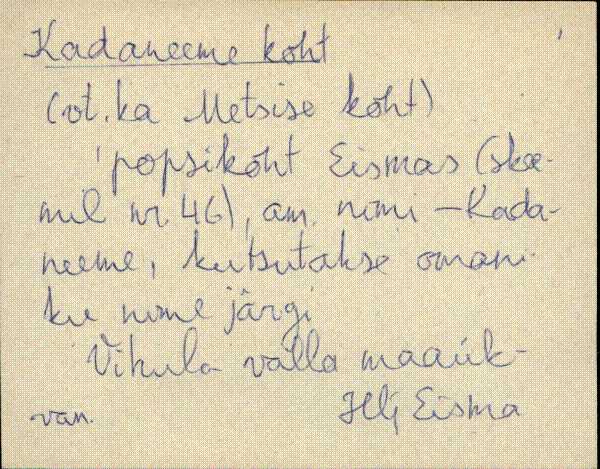 Kadaneeme koht
(vt. ka Metsise koht)
popsikoht Eismas (skee-
mil nr. 46), am. nimi – Kada-
neeme, kutsutakse omani-
ku nime järgi
Vihula valla maaük-
van. Hlj Eisma